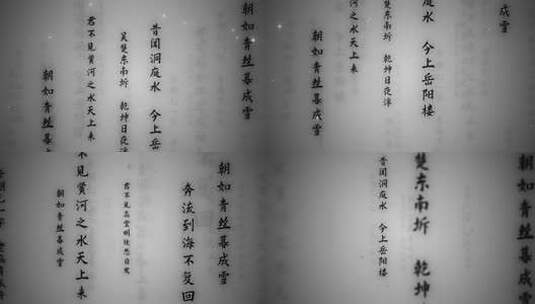 朝如青丝暮成雪
昔闻洞庭水 今上岳
吴楚东南坼 乾坤日夜
君不见黄河之水天上来
朝如青丝暮
成雪
庭水 今上岳阳楼
东南坼 乾坤日夜浮
之水天上来
朝如青丝暮成雪
朝如青丝暮成雪
奔流到海不复回
君不见高堂明镜悲白发
不见黄河之水天上来
朝如青丝暮成雪
朝如青丝暮成
楚东南坼 乾坤
昔闻洞庭水 今上岳阳楼